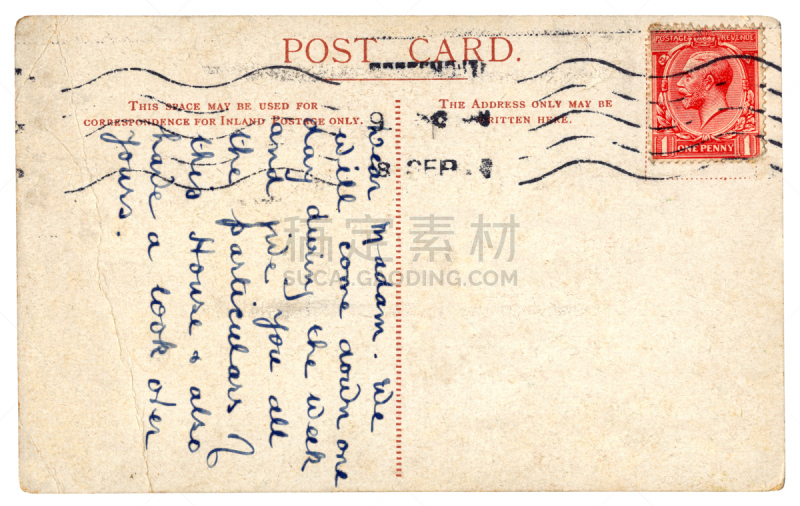 POST CARD.
THIS SPACE MAY BE USED FOR
CORRESPONDENCE FOR INLAND POSTAGE ONLY.
THE ADDRESS ONLY MAY BE
WRITTEN HERE.
POSTAGE & REVENUE
1 ONE PENNY 1
8 SEP
Dear Madam. We
will come down one
day during the week
and give you all
the particulars of
this House & also
have a look over
yours.
搞定素材
SUCAI.GAODING.COM